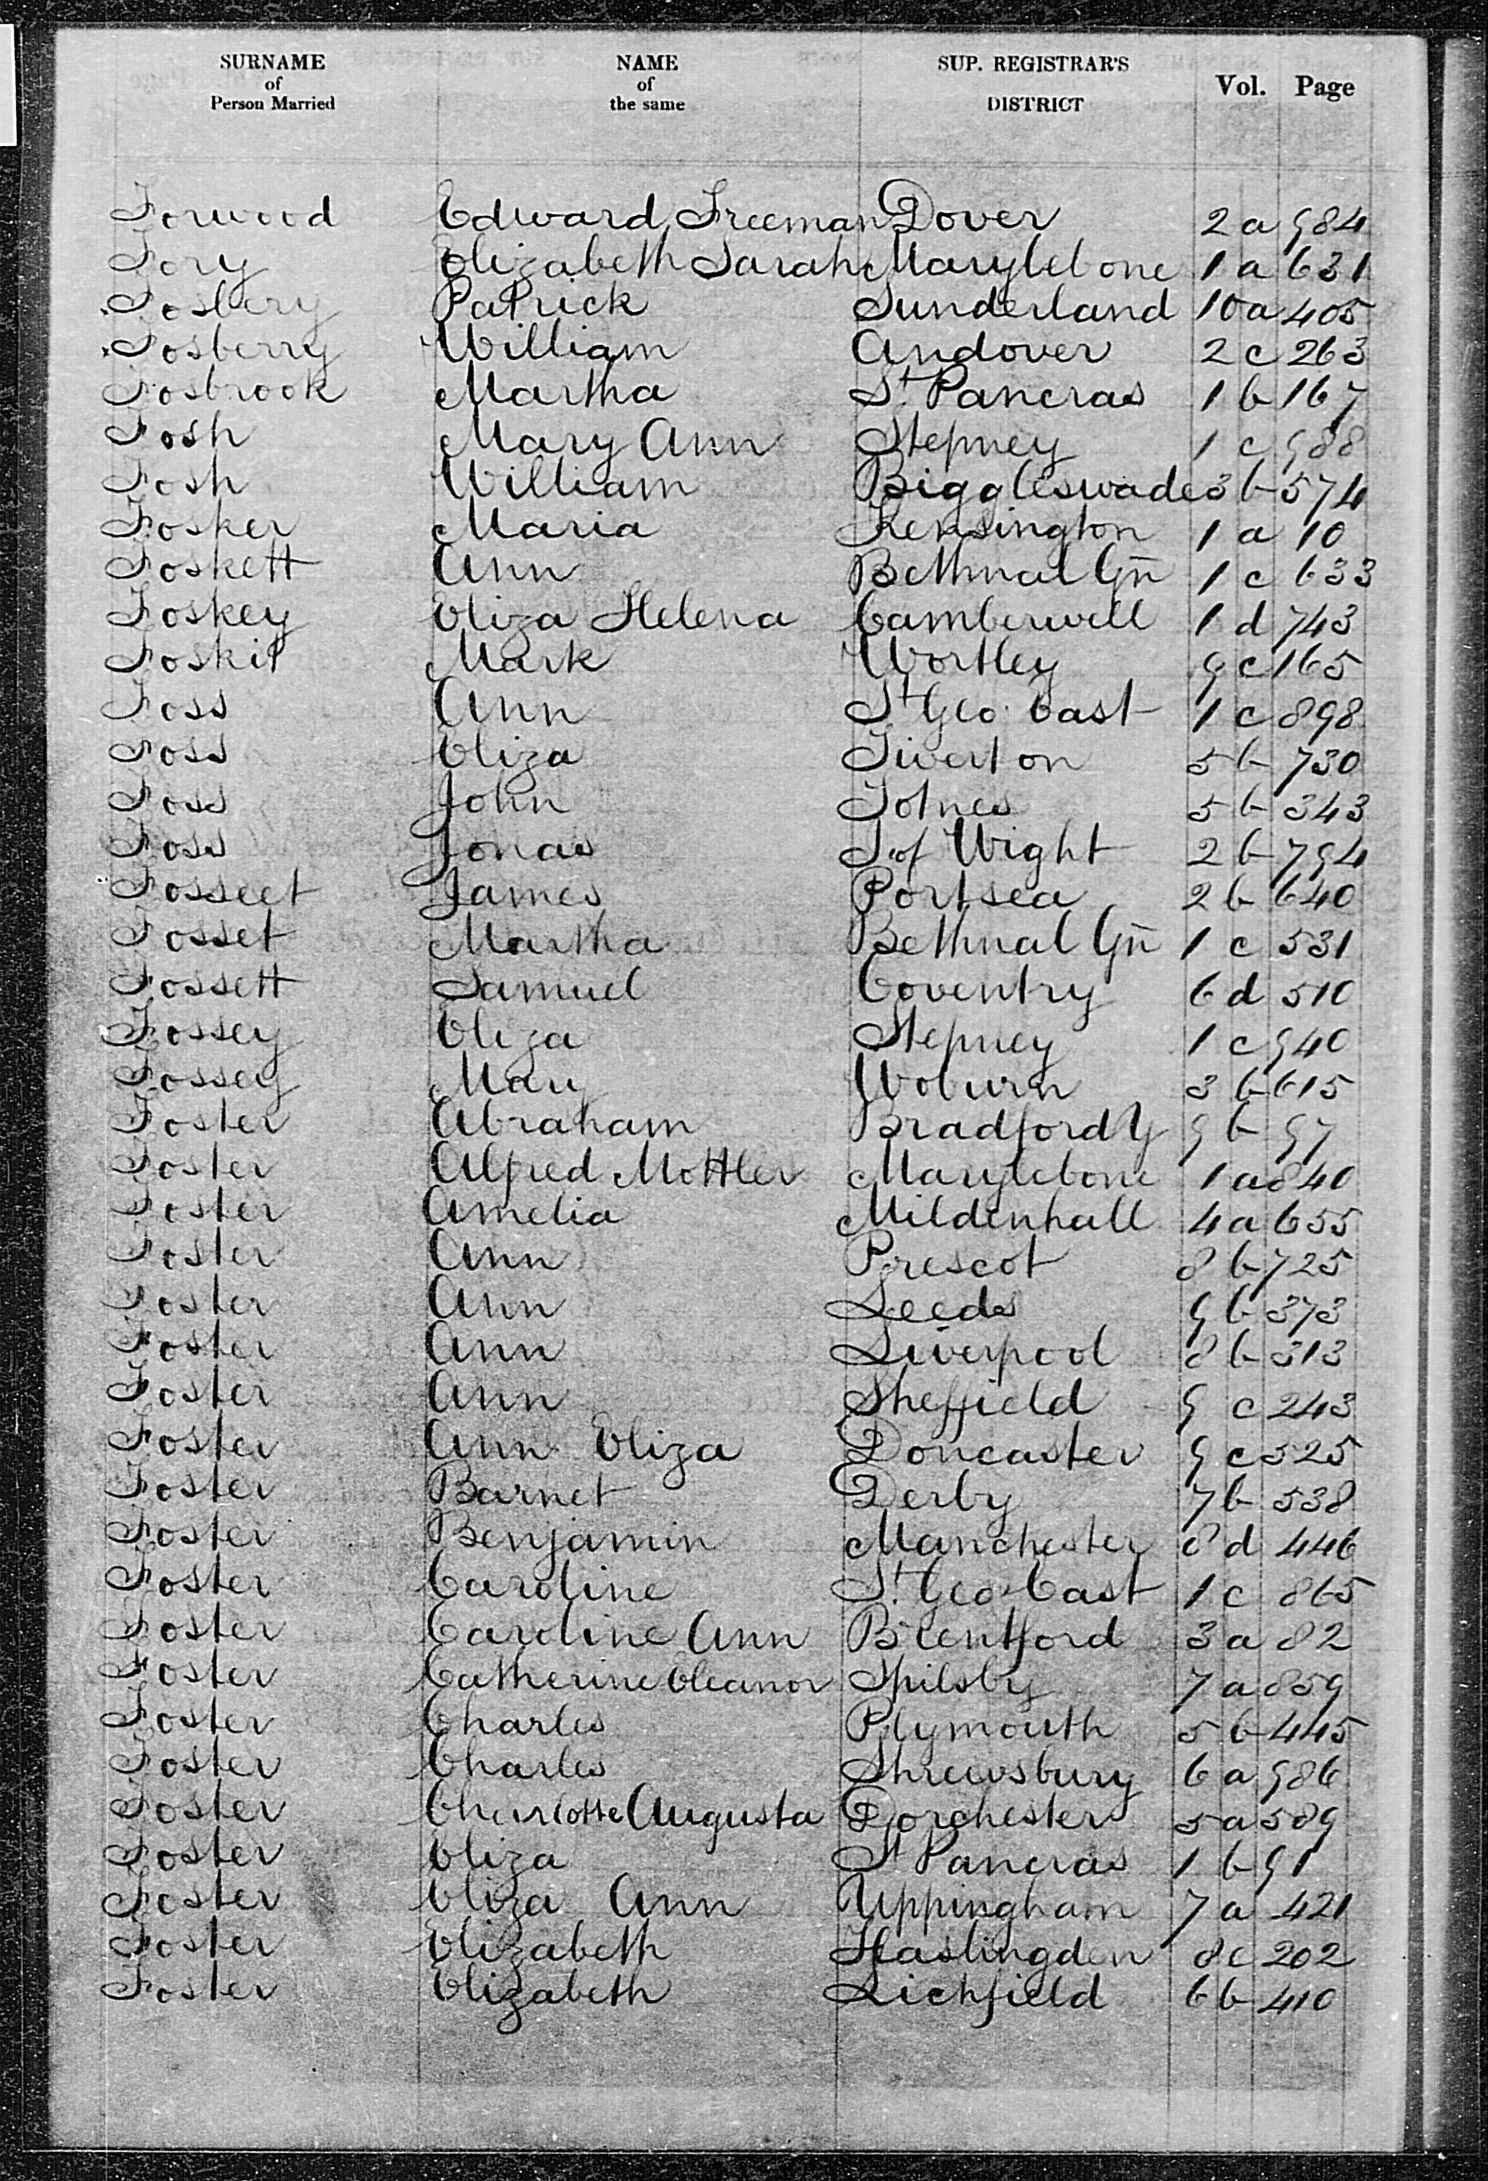 SURNAME of Person Married NAME of the same SUP. REGISTRAR'S DISTRICT Vol. Page
Forwood Edward Freeman Dover 2 a 984
Fory Elizabeth Sarah Marylebone 1 a 631
Fosbery Patrick Sunderland 10 a 405
Fosberry William Andover 2 c 263
Fosbrook Martha St. Pancras 1 b 167
Fosh Mary Ann Stepney 1 c 988
Fosh William Biggleswade 3 b 574
Fosker Maria Kensington 1 a 10
Foskett Ann Bethnal Gn 1 c 633
Foskey Eliza Helena Camberwell 1 d 743
Foskit Mark Wortley 9 c 165
Foss Ann St Geo. East 1 c 898
Foss Eliza Tiverton 5 b 730
Foss John Totnes 5 b 343
Foss Jonas I. of Wight 2 b 794
Fosseet James Portsea 2 b 640
Fosset Martha Bethnal Gn 1 c 531
Fossett Samuel Coventry 6 d 510
Fossey Eliza Stepney 1 c 940
Fossey Mary Woburn 3 b 615
Foster Abraham Bradford Y 9 b 97
Foster Alfred Mottler Marylebone 1 a 840
Foster Amelia Mildenhall 4 a 655
Foster Ann Prescot 8 b 725
Foster Ann Leeds 9 b 373
Foster Ann Liverpool 8 b 313
Foster Ann Sheffield 9 c 243
Foster Ann Eliza Doncaster 9 c 325
Foster Barnet Derby 7 b 538
Foster Benjamin Manchester 8 d 446
Foster Caroline St. Geo. East 1 c 865
Foster Caroline Ann Brentford 3 a 82
Foster Catherine Eleanor Spilsby 7 a 859
Foster Charles Plymouth 5 b 445
Foster Charles Shrewsbury 6 a 986
Foster Charlotte Augusta Dorchester 5 a 589
Foster Eliza St Pancras 1 b 91
Foster Eliza Ann Uppingham 7 a 421
Foster Elizabeth Haslingden 8 c 202
Foster Elizabeth Lichfield 6 b 410